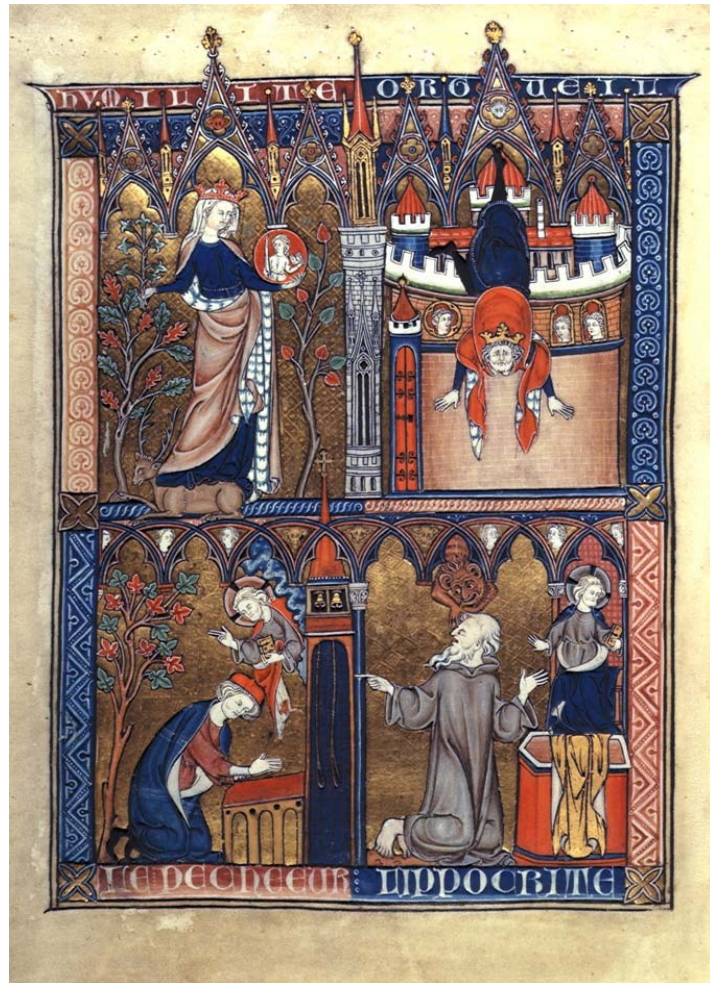 HUMILITE ORGUEIL
LE PECHEEUR : LIPPOCRITE